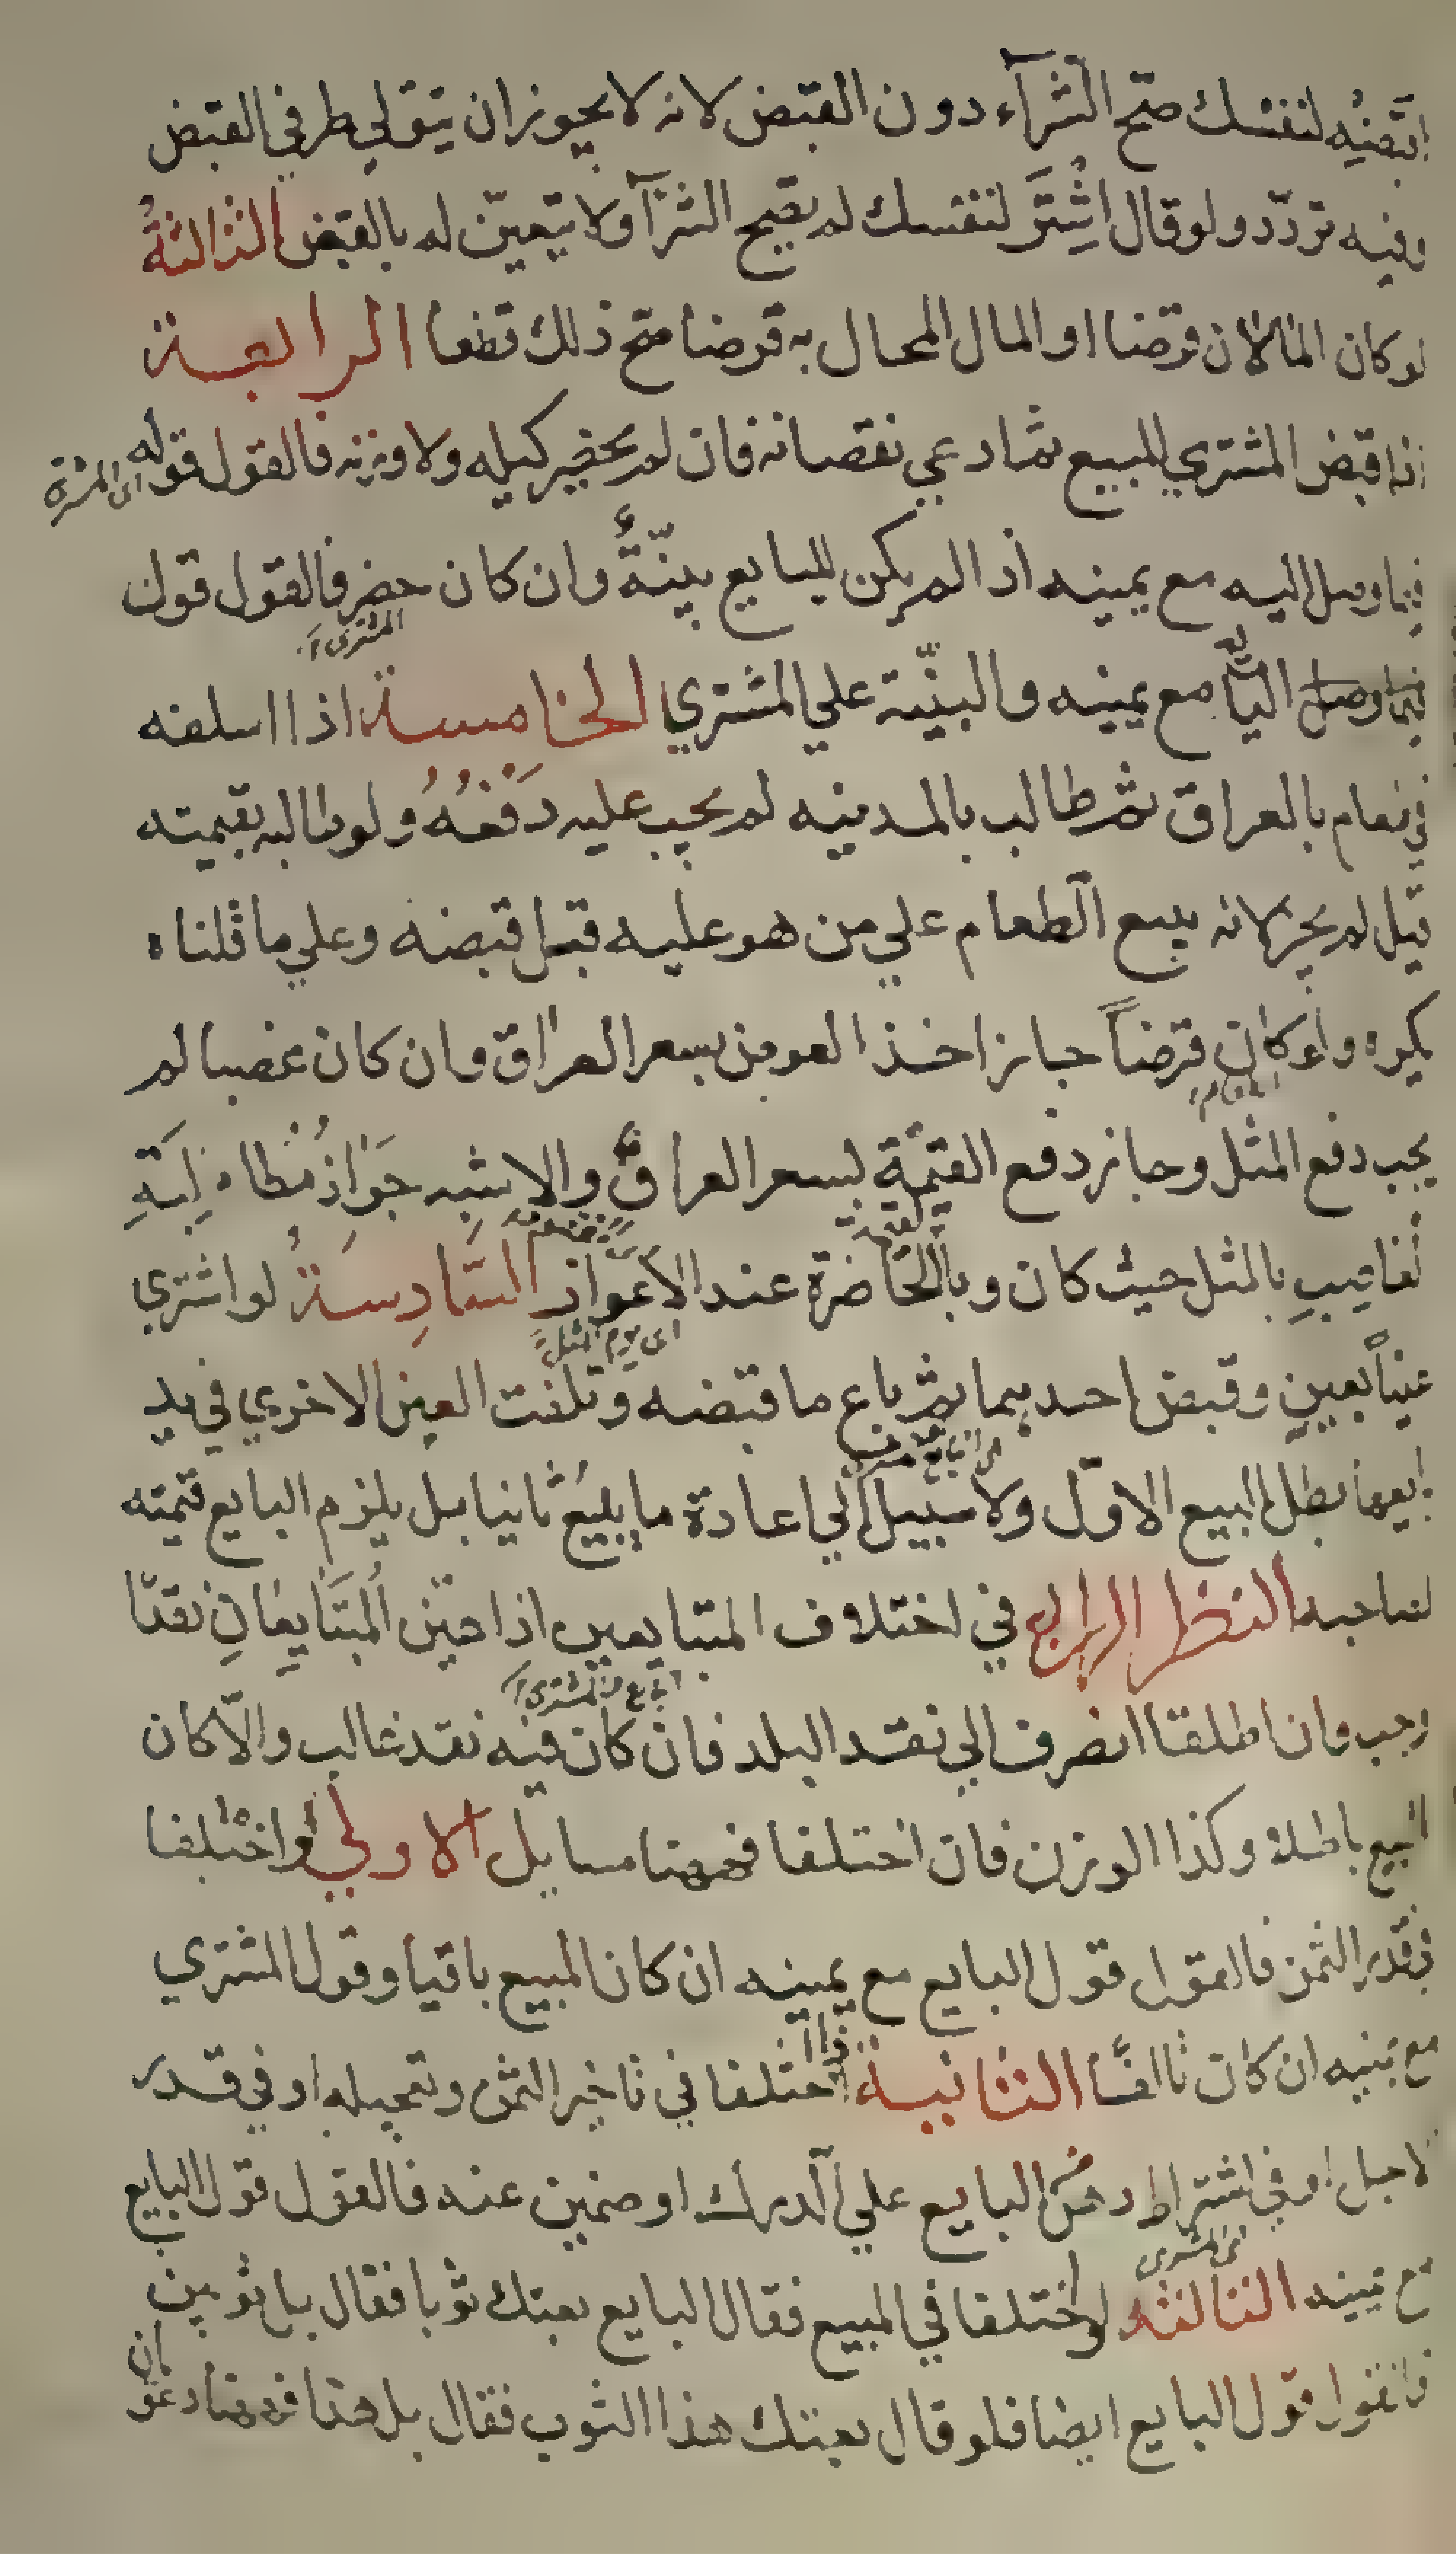 اقبضه لنفسك صح الشرآء دون القبض لانه لا يجوز ان يتولي طرفي القبض
وفيه تردّد ولو قال اشتر لنفسك لم يصح الشرآ ولا يتعيّن له بالقبض الثالثة
لو كان المالان قرضا او المال المحال به قرضا صح ذلك قطعا الرابعة
اذا قبض المشتري المبيع ثم ادعي نقصانه فان لم يحضر كيله ولا وزنه فالقول قوله
اي المشتري
فيما وصل اليه مع يمينه اذا لم يكن للبايع بينّةٌ وان كان حضر فالقول قول
المشتري
فيما وصل اليه مع يمينه والبيّنة علي المشتري الخامسة اذا اسلفه
في طعام بالعراق ثم طالب بالمدينه لم يجب عليه دَفْعُهُ ولو طالبه بقيمته
قيل لم يجز لانه بيع الطعام علي من هو عليه قبل قبضه وعلي ما قلناه
يكره ولو كان قرضاً جاز اخذ العوض بسعر العراق وان كان غصبا لم
يجب دفع المثل وجاز دفع القيمة بسعر العراق والاشبه جَوَازُ مُطالبَةِ
الغاصِبِ بالمثل حيث كان وبالحاضرة عند الاعواز السّادِسَةُ لو اشتري
عيناً بعينٍ وقبض احدهما ثم باع ما قبضه وتلفت العين الاخري في يد
بايعها بطل البيع الاوّل ولا سبيل الي اعادة ما بيع ثانيا بل يلزم البايع قيمته
لصاحبه النظر الرابع في اختلاف المتبايعين اذا عيّن المُتَبَايِعَانِ نقدًا
وجب وان اطلقا انصرف الي نقد البلد فان كان فيه نقد غالب والّا كان
البيع باطلا وكذا الوزن فان اختلفا فههنا مسايل الاولي لو اختلفا
في قدر الثمن فالقول قول البايع مع يمينه ان كان المبيع باقيا وقول المشتري
مع يمينه ان كان تالفًا الثانية اذا اختلفا في تاخير الثمن وتعجيله او في قدر
الاجل او في اشتراط رهن البايع علي الدرك او ضمين عنه فالقول قول البايع
مع يمينه الثالثة لو اختلفا في المبيع فقال البايع بعتك ثوبا فقال بل ثوبين
فالقول قول البايع ايضا فلو قال بعتك هذا الثوب فقال بل هذا فههنا دعويان